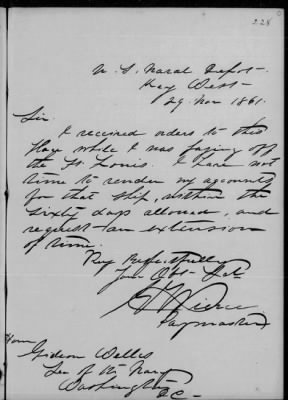 228
U. S. Naval Depot
Key West
29 Nov 1861.
Sir.
I received orders to this
place while I was paying off
the St. Louis. I have not
time to render my accounts
for that ship, within the
sixty days allowed, and
request an extension
of time.
Very Respectfully
Your Obt Svt
Paymaster
Hon
Gideon Welles
Sec of the Navy
Washington
D.C.